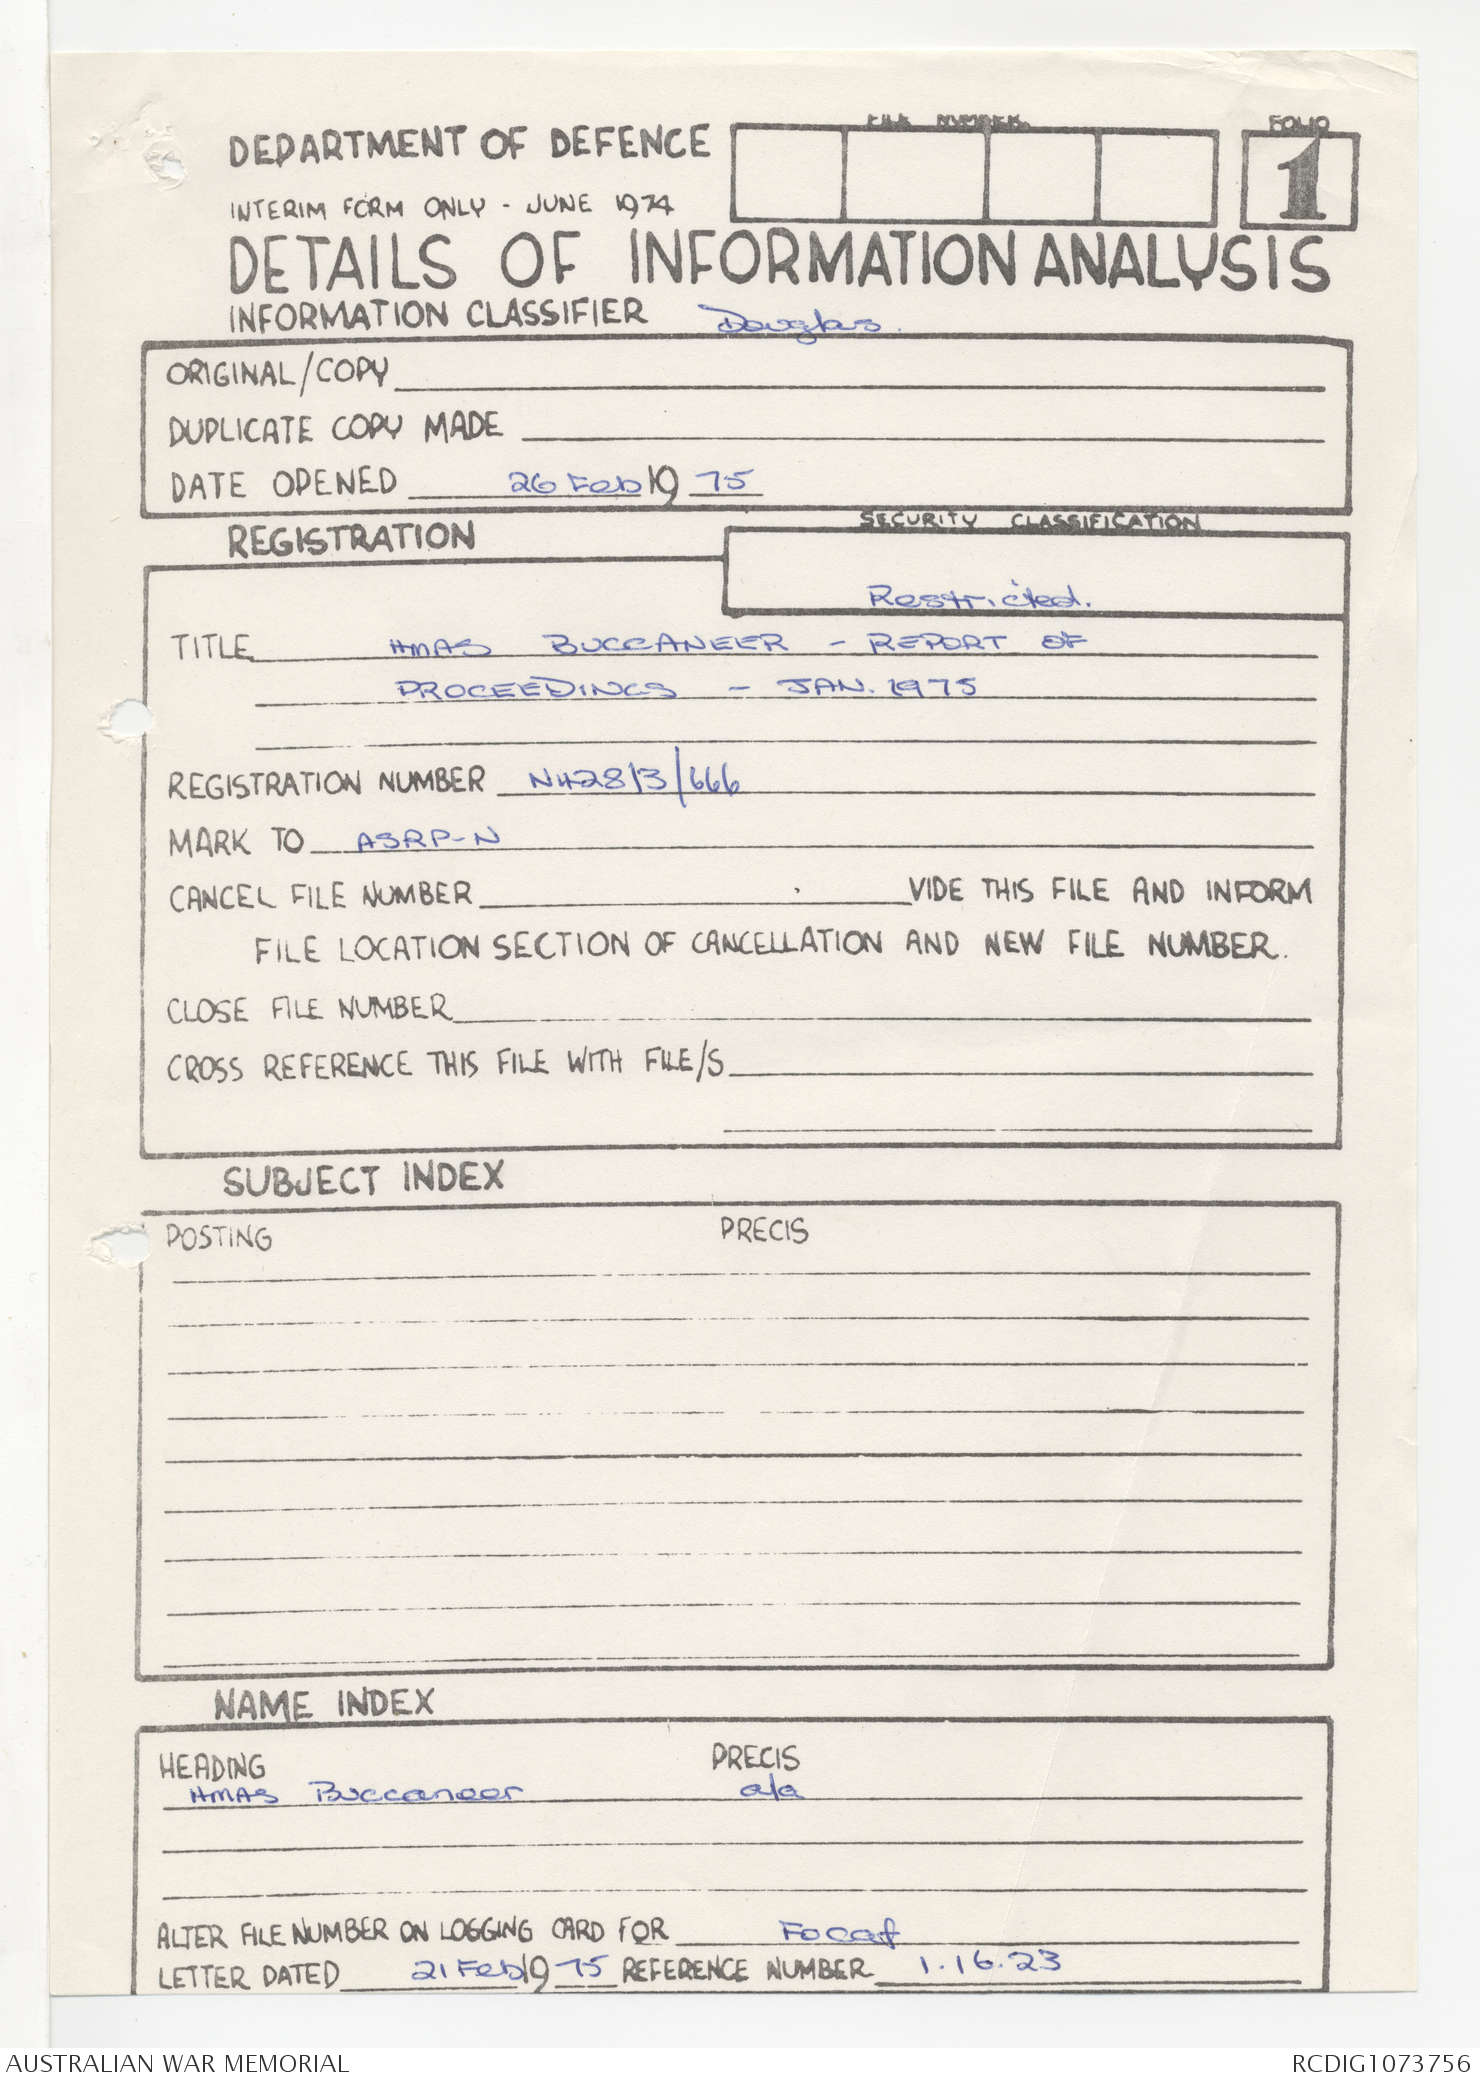 FILE NUMBER
FOLIO
DEPARTMENT OF DEFENCE
1
INTERIM FORM ONLY - JUNE 1974
DETAILS OF INFORMATION ANALYSIS
INFORMATION CLASSIFIER Douglas.
ORIGINAL/COPY
DUPLICATE COPY MADE
DATE OPENED 26 Feb 19 75
REGISTRATION
SECURITY CLASSIFICATION
Restricted.
TITLE HMAS BUCCANEER - REPORT OF
PROCEEDINGS - JAN. 1975
REGISTRATION NUMBER N428/3/666
MARK TO ASRP-N
CANCEL FILE NUMBER VIDE THIS FILE AND INFORM
FILE LOCATION SECTION OF CANCELLATION AND NEW FILE NUMBER.
CLOSE FILE NUMBER
CROSS REFERENCE THIS FILE WITH FILE/S
SUBJECT INDEX
POSTING PRECIS
NAME INDEX
HEADING PRECIS
HMAS Buccaneer a/a
ALTER FILE NUMBER ON LOGGING CARD FOR Focaf
LETTER DATED 21 Feb 19 75 REFERENCE NUMBER 1.16.23
AUSTRALIAN WAR MEMORIAL
RCDIG1073756